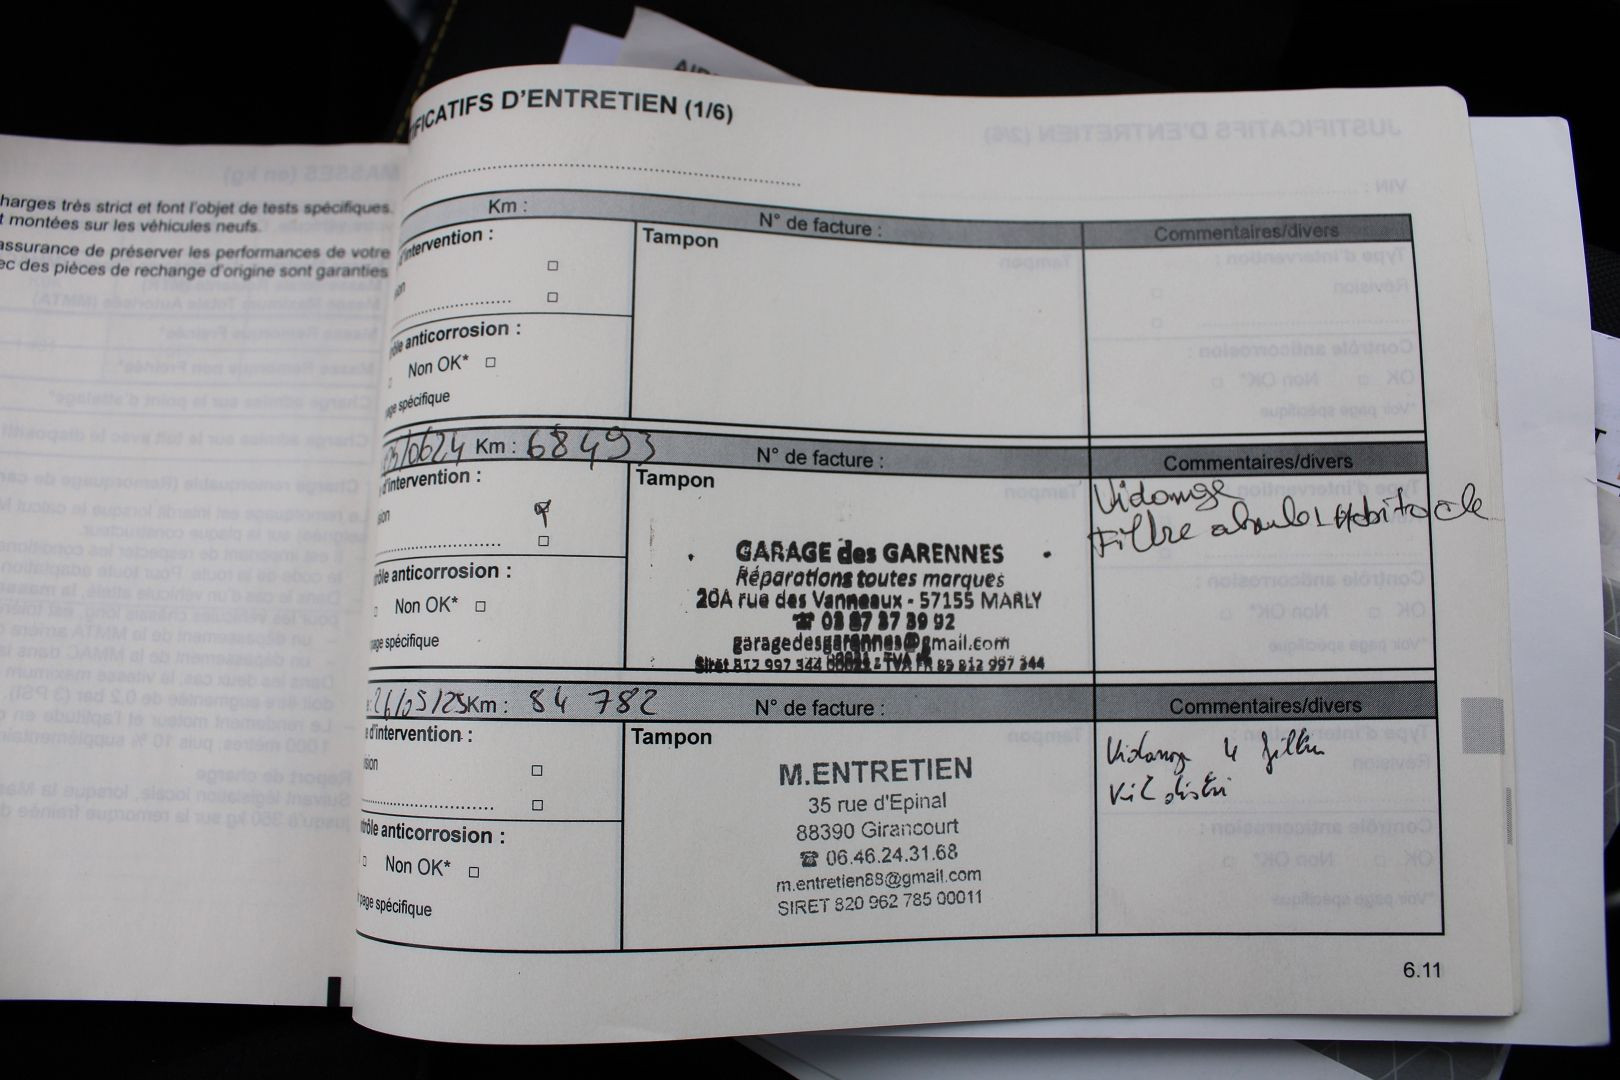 IFICATIFS D'ENTRETIEN (1/6)
harges très strict et font l'objet de tests spécifiques.
t montées sur les véhicules neufs.
assurance de préserver les performances de votre
ec des pièces de rechange d'origine sont garanties
Km :
N° de facture :
Commentaires/divers
d'intervention :
Tampon
sion
ôle anticorrosion :
Non OK*
page spécifique
/0624 Km : 68493
N° de facture :
Commentaires/divers
d'intervention :
Tampon
sion
Vidange
Filtre
GARAGE des GARENNES
Réparations toutes marques
20A rue des Vanneaux - 57155 MARLY
☎ 03 87 37 39 92
garagedesgarennes@gmail.com
Siret 812 997 344 00021 - TVA FR 89 812 997 344
rôle anticorrosion :
Non OK*
page spécifique
26/05/25 Km : 84 782
N° de facture :
Commentaires/divers
e d'intervention :
Tampon
ision
Vidange 4 filtre
M.ENTRETIEN
35 rue d'Epinal
88390 Girancourt
☎ 06.46.24.31.68
m.entretien88@gmail.com
SIRET 820 962 785 00011
trôle anticorrosion :
Non OK*
page spécifique
6.11